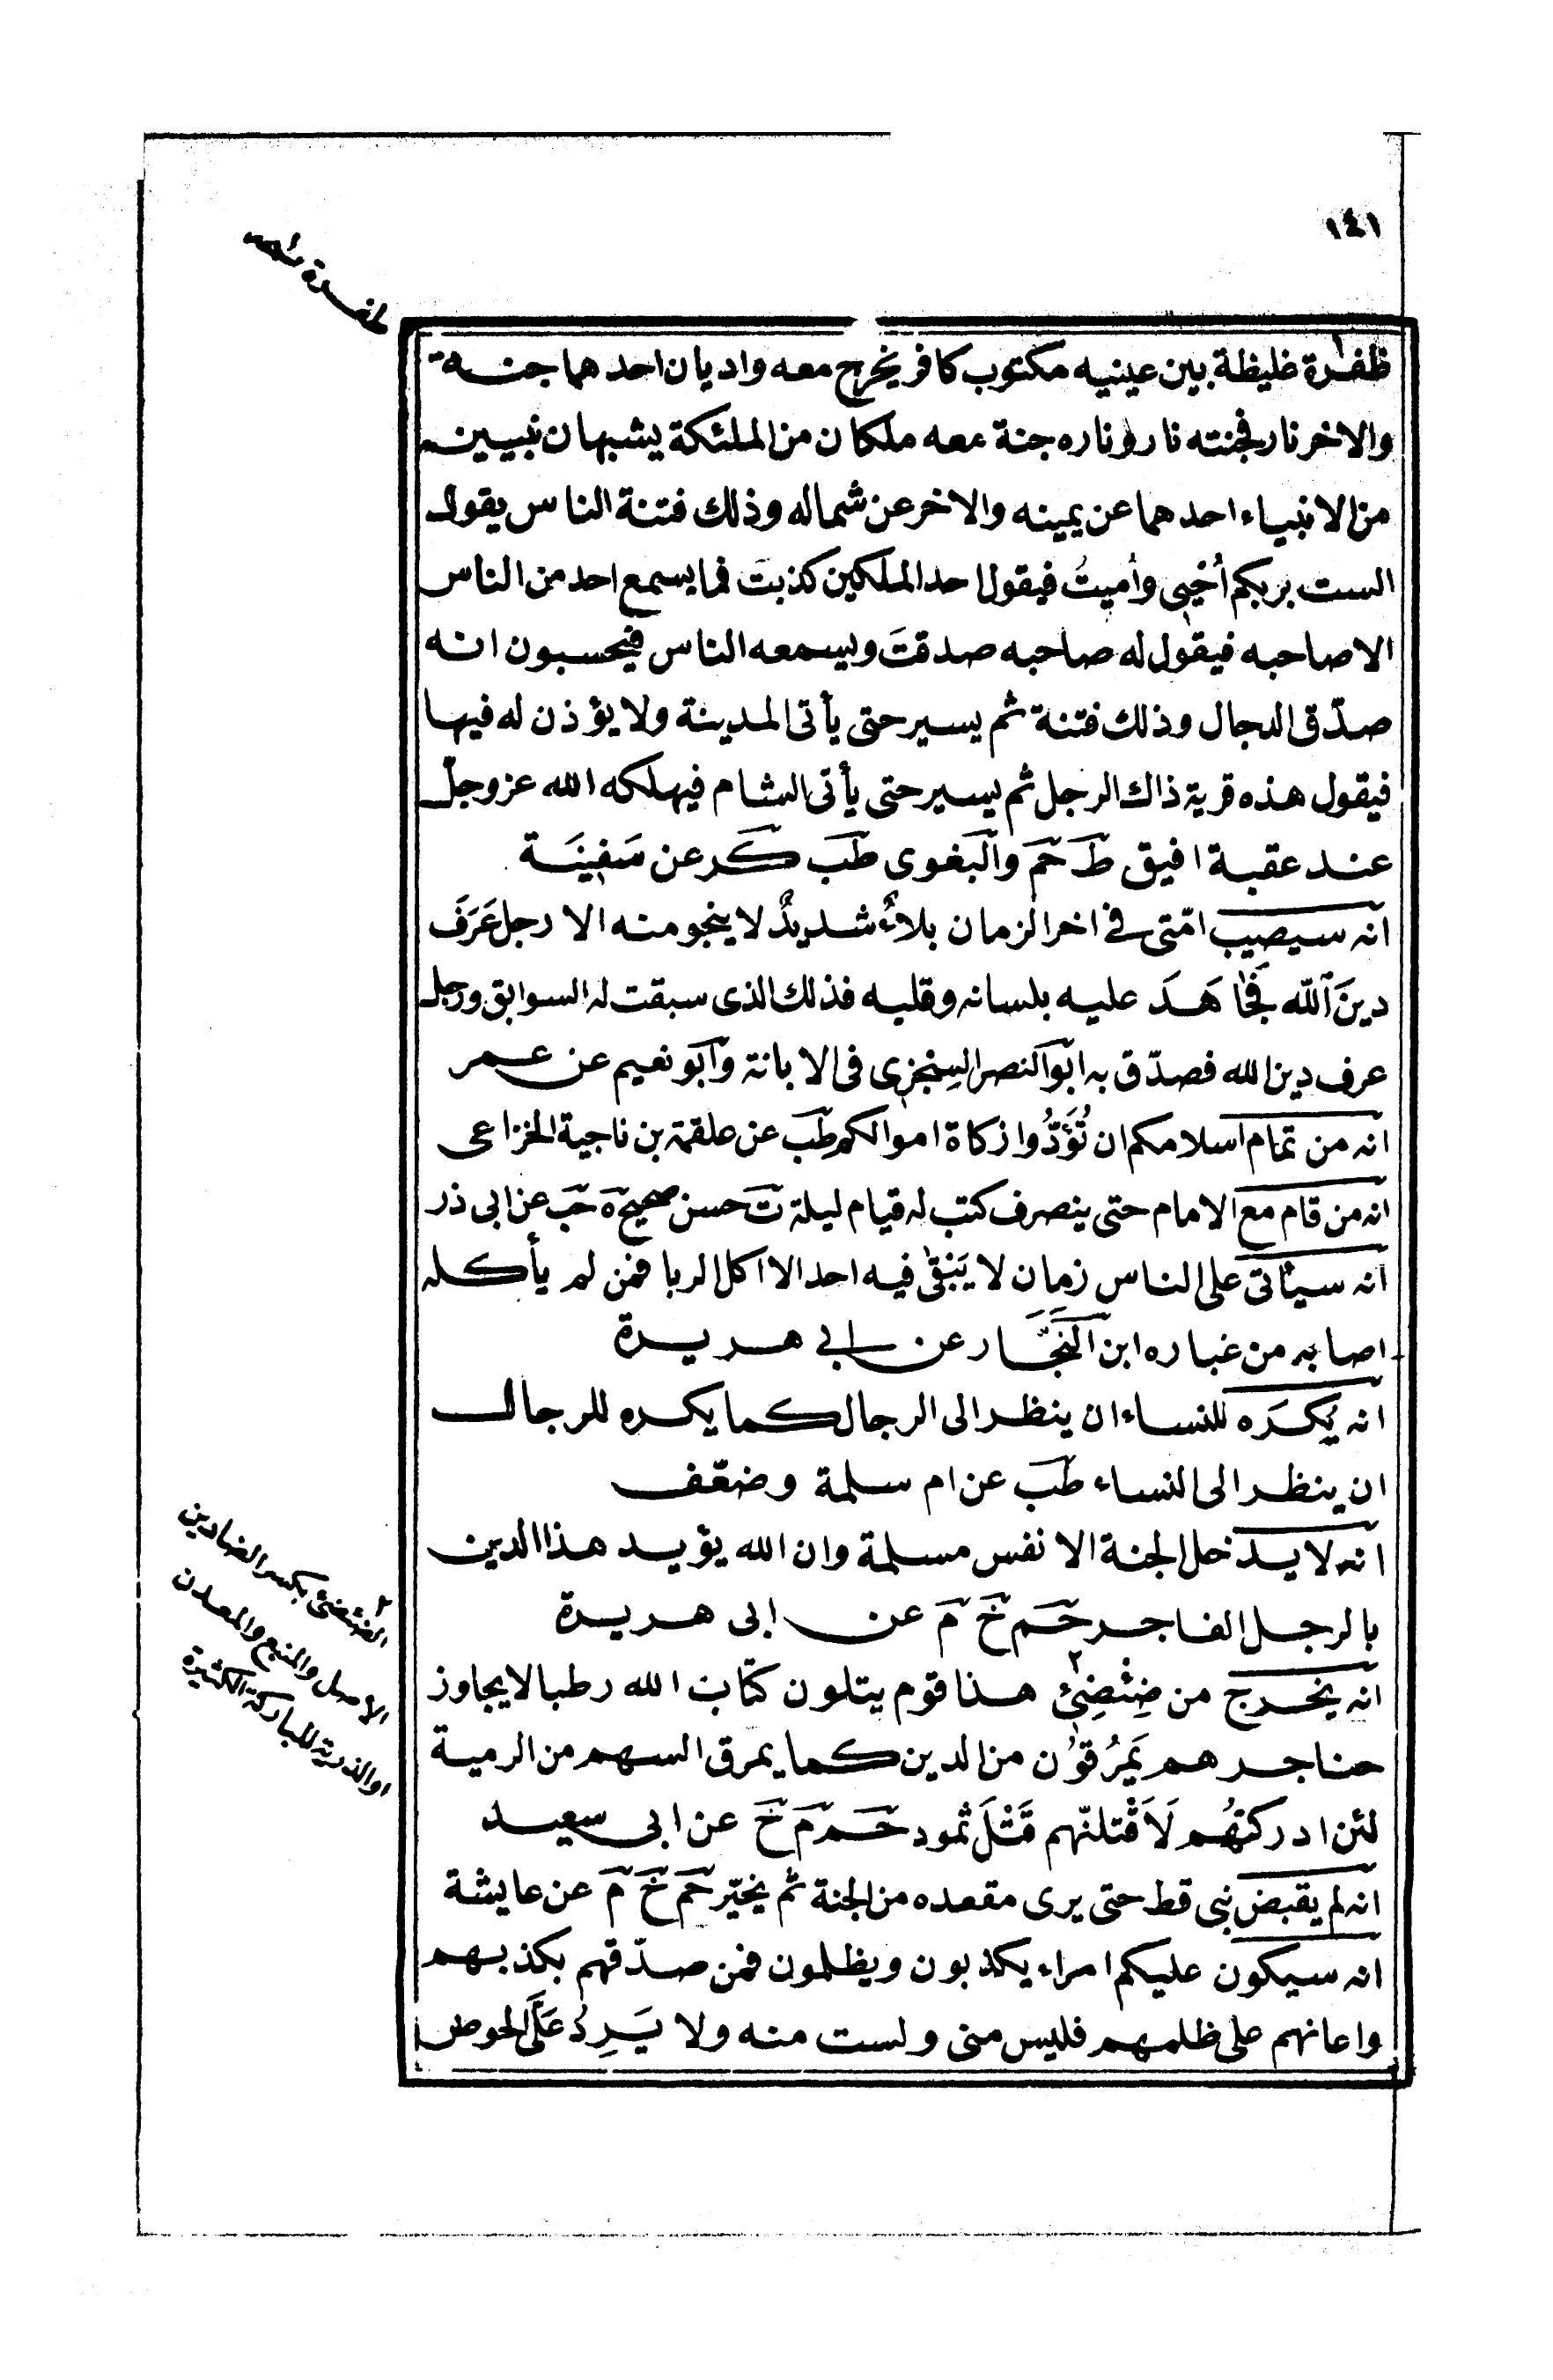 ١٤١
ظفرة غليظة بين عينيه مكتوب كافر يخرج معه واديان احدهما جنة
والاخر نار فجنته نار وناره جنة معه ملكان من الملئكة يشبهان نبيين
من الانبياء احدهما عن يمينه والاخر عن شماله وذلك فتنة الناس يقول
الست بربكم أحيى وأميتُ فيقول احد الملكين كذبتَ فما يسمع احد من الناس
الا صاحبه فيقول له صاحبه صدقتَ ويسمعه الناس فيحسبون انه
صدّق الدجال وذلك فتنة ثم يسير حتى يأتى المدينة ولا يؤذن له فيها
فيقول هذه قرية ذاك الرجل ثم يسير حتى يأتى الشام فيهلكه الله عز وجلّ
عند عقبة افيق ط حم والبغوى طب كر عن سَفِينَة
انه سيصيب امّتى فى اخر الزمان بلاءٌ شديدٌ لا ينجو منه الا رجل عَرَفَ
دينَ الله فجَاهَدَ عليه بلسانه وقلبه فذلك الذى سبقت له السوابق ورجل
عرف دين الله فصدّق به ابو النصر السِنجزِى فى الابانة وابو نعيم عن عمر
انه من تمام اسلامكم ان تُؤَدُّوا زكاة اموالكم طب عن علقمة بن ناجية الخزاعى
انه من قام مع الامام حتى ينصرف كتب له قيام ليلة ت حسن صحيح ه حب عن ابى ذر
انه سيأتى على الناس زمان لا يَبْقىٰ فيه احد الا اكل الربا فمن لم يأكله
اصابه من غباره ابن النَجَّار عن ابى هريرة
انه يُكرَه للنساء ان ينظر الى الرجال كما يكره للرجال
ان ينظر الى النساء طب عن ام سلمة وضعّف
انه لا يدخل الجنة الا نفس مسلمة وان الله يؤيد هذا الدين
بالرجل الفاجر حم خ م عن ابى هريرة
انه يخرج من ضِئْضِئِ ٢ هذا قوم يتلون كتاب الله رطبا لا يجاوز
حناجرهم يَمرُقوُن من الدين كما يمرق السهم من الرمية
لئن ادركتهُم لَاَقْتلنّهم قَتْلَ ثمود حم م خ عن ابى سعيد
انه لم يقبض نبى قط حتى يرى مقعده من الجنة ثم يخيّر حم خ م عن عايشة
انه سيكون عليكم امراء يكذبون ويظلمون فمن صدّقهم بكذبهم
واعانهم على ظلمهم فليس منى ولست منه ولا يَرِدُ عَلَىَّ الحوض
٢
الضئضئ بكسر الضادين
الاصل والمنبع والمعدن
او الذرية المباركة الكثيرة